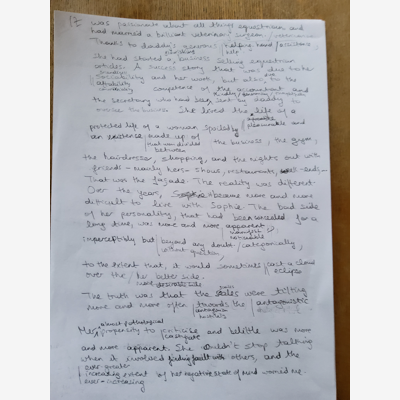 was passionate about all things equestrian and
had married a brilliant veterinary surgeon / veterinarian
Thanks to daddy's generous / helping hand / assistance
help
She had started a business selling equestrian
articles. A success story that was due to her
sociability and her work, but also to the
affability
competence of the accountant and
the secretary who had been sent by daddy to
the business. She loved the life of a
enjoyable
protected life of a woman spoiled by pleasurable and
an existence made up of
that was divided the business, the gym,
between
the hairdresser, shopping, and the nights out with
friends – mainly hers – shows, restaurants, week-ends.
That was the façade. The reality was different.
Over the years, Sophie became more and more
difficult to live with Sophie. The bad side
of her personality, that had been concealed for a
long time, was more and more apparent
imperceptibly but beyond any doubt / categorically,
without question
to the extent that, it would sometimes cast a shadow
over the / her better side. eclipse
more desirable side
The truth was that the scales were tilting
more and more often towards the antagonistic
antagonism
hostility
almost pathological
Her propensity to criticise and belittle was more
castigate
and more apparent. She couldn't stop talking
when it involved finding fault with others, and the
ever-greater
increasing extent of her negative state of mind worried me.
ever-increasing